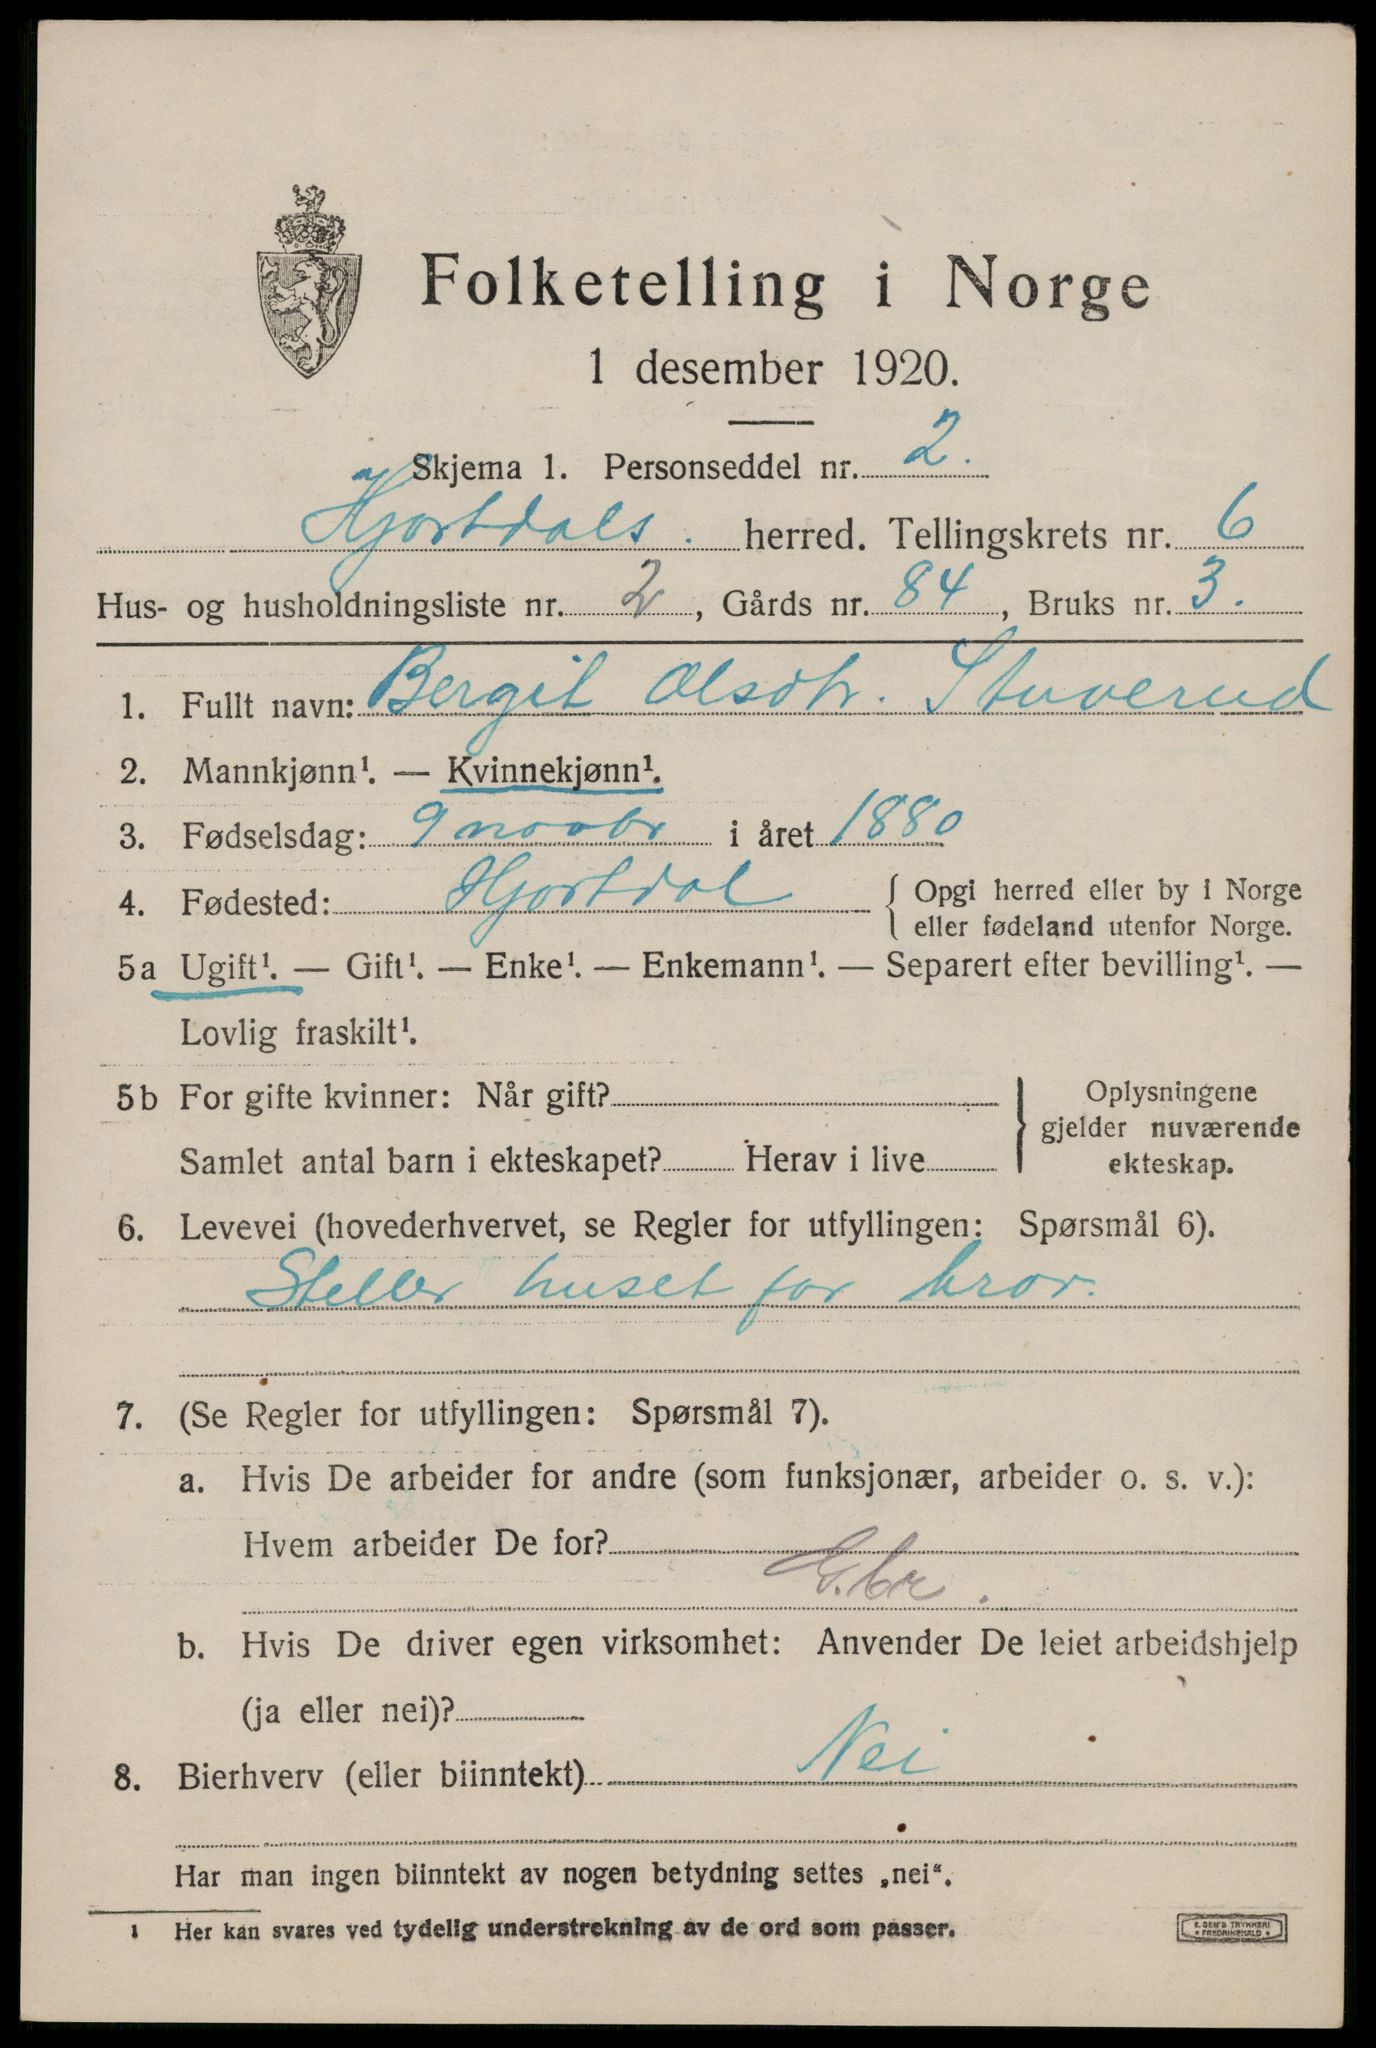 Folketelling i Norge
1 desember 1920.
Skjema 1. Personseddel nr. 2.
Hjartdals. herred. Tellingskrets nr. 6
Hus- og husholdningsliste nr. 2, Gårds nr. 84, Bruks nr. 3.
1. Fullt navn: Bergit Olsdtr. Stuverud
2. Mannkjønn¹. — Kvinnekjønn¹.
3. Fødselsdag: 9 novbr i året 1880
4. Fødested: Hjartdal { Opgi herred eller by i Norge
eller fødeland utenfor Norge.
5a Ugift¹. — Gift¹. — Enke¹. — Enkemann¹. — Separert efter bevilling¹. —
Lovlig fraskilt¹.
5b For gifte kvinner: Når gift? } Oplysningene
gjelder nuværende
Samlet antal barn i ekteskapet? Herav i live
ekteskap.
6. Levevei (hovederhvervet, se Regler for utfyllingen: Spørsmål 6).
Steller huset for bror.
7. (Se Regler for utfyllingen: Spørsmål 7).
a. Hvis De arbeider for andre (som funksjonær, arbeider o. s. v.):
Hvem arbeider De for?
G.br.
b. Hvis De driver egen virksomhet: Anvender De leiet arbeidshjelp
(ja eller nei)?
8. Bierhverv (eller biinntekt) Nei
Har man ingen biinntekt av nogen betydning settes „nei“.
1 Her kan svares ved tydelig understrekning av de ord som passer.
E. SEM'S TRYKKERI
* FREDRIKSHALD *